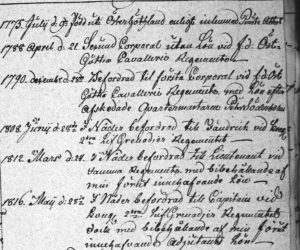 1775. Julij d. 9. född uti Östergöthland enligt inlemnad Präste Attest
1788 April d. 21. Secund Corporal utan lön vid f.d. Öst
Göttha Cavallerie Regementet
1790. december d. 28 Befordrad til första Corporal vid f.d. Öst
Götha Cavallerie Regemente, med lön efter
afskedade Quartermästaren Pehr
1808. Junij d. 28 I Nåder befordrad til Fändrick vid
Lif Grenadier Regementet
1812. Mars d. 21. I Nåder befordrad til Lieutenant vid
samma Regemente med bibehållande af
min förut innehafvande lön
1816. Maij d. 28 I Nåder befordrad til Capitain vid
Kong. 2dra Lif Grenadier Regementet
dock med bibehållande af min förut
innehafvande adjutants lön